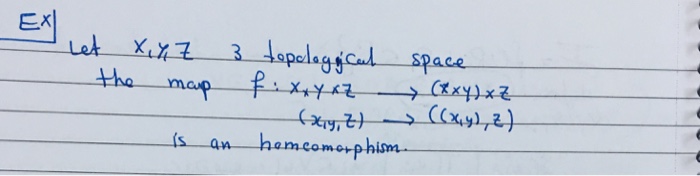 Ex
Let X, Y, Z 3 topological space
the map f : X × Y × Z → (X × Y) × Z
(x, y, z) → ((x, y), z)
is an homeomorphism.